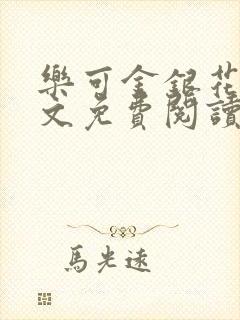 樂可金銀花
文免費閱讀
馬光遠